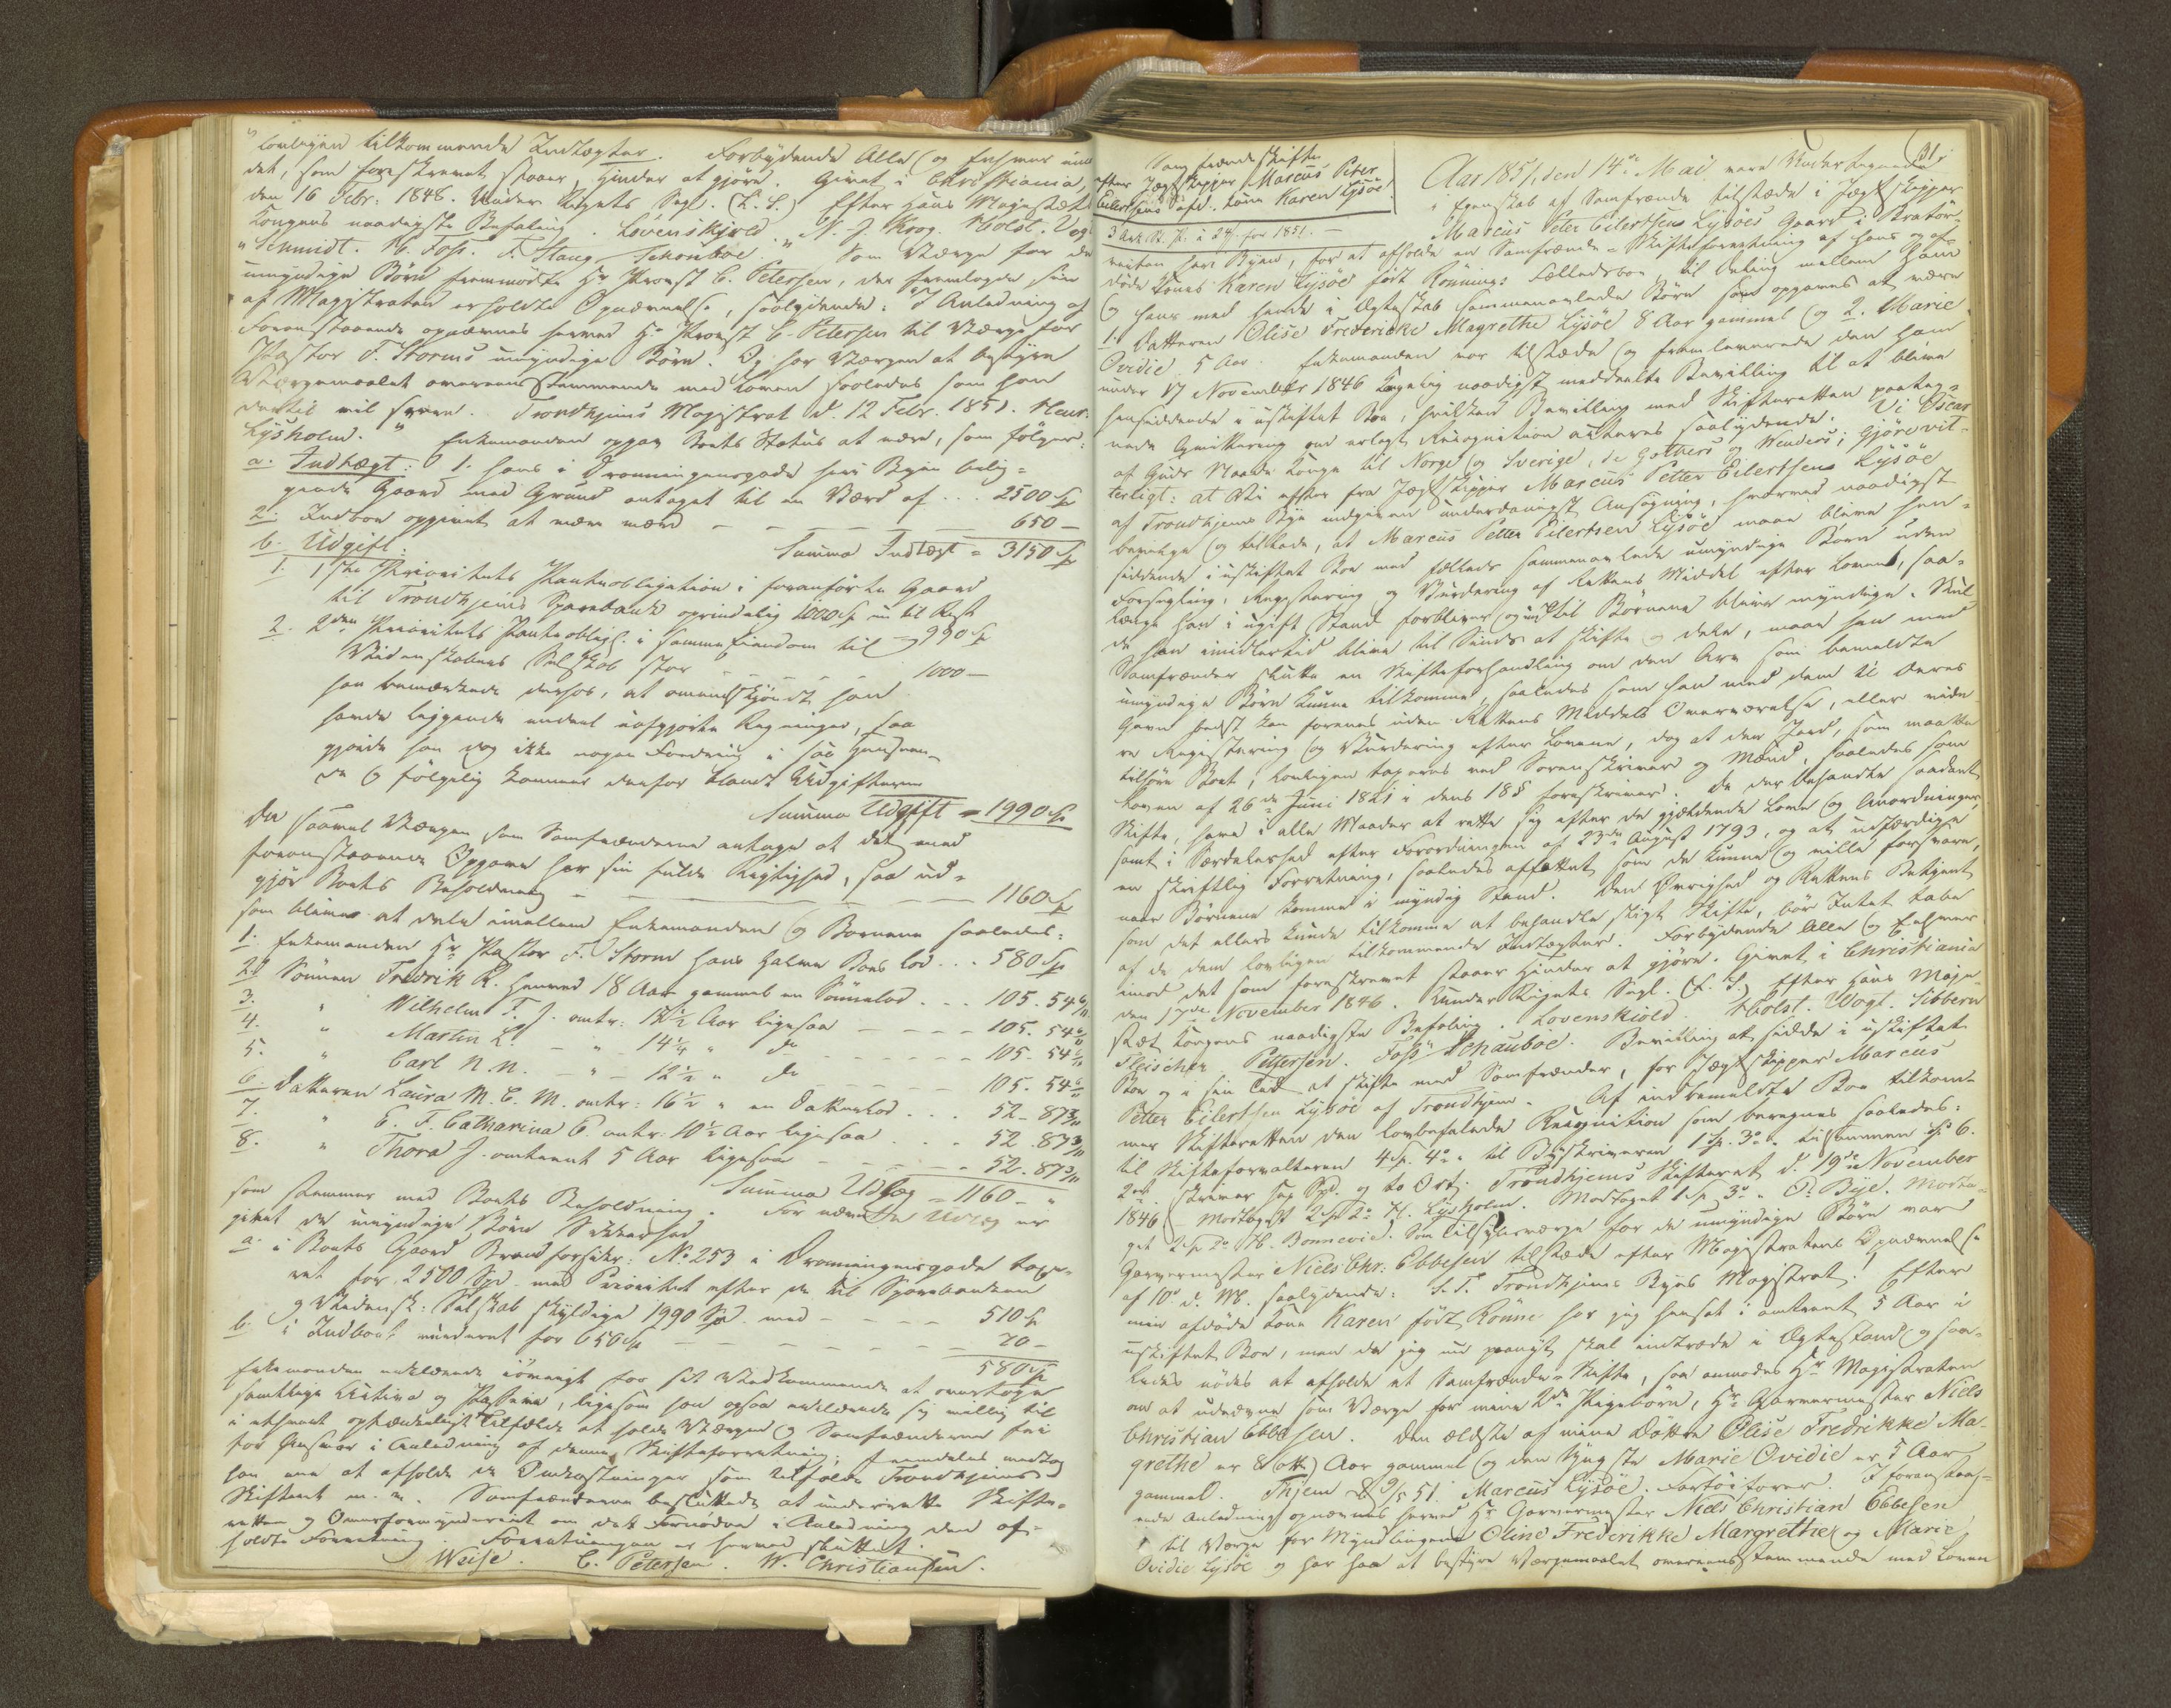 "lovligen tilkommende Indtægter. Forbydende Alle og Enhver imod
det, som foreskrevet staaer, Hinder at gjöre. Givet i Christiania,
den 16 Febr: 1848. Under Rigets Segl. (L. S.) Efter Hans Majestæt
Kongens naadigste Befaling. Lövenskjold. N. J. Krog. Holst. Vogt
"Schmidt. H. Foss. F. Stang. Schouboe." Som Værge for de
umyndige Börn fremmödte Hr Provst C. Petersen, der fremlagde sin
af Magistraten erholdte Opnævnelse, saalydende: "I Anledning af
Foranstaaende opnævnes herved Hr Provst C. Petersen til Værge for
Pastor F. Storms umyndige Börn. Og har Værgen at bestyre
Værgemaalet overeensstemmende med Loven saaledes som han
dertil vil svare. Trondhjems Magistrat d. 12 Febr. 1851. Henr.
Lysholm." Enkemanden opgav Boets Status at være, som fölger:
a. Indtægt: 1. hans i Dronningensgade her i Byen belig=
gende Gaard med Grund antaget til en Værd af ... 2500 Sp
2. Indboe opgivet at være værd - - - - - - 650 -
Summa Indtægt = 3150 Sp
b. Udgift:
1. 1ste Prioritets Panteobligation i foranförte Gaard
til Trondhjems Sparebank oprindelig 1000 Sp nu til Rest 990 Sp
2. 2den Prioritets Panteoblig: i samme Eiendom til
Videnskabers Selskab stor - - - - - 1000 -
han bemærkede derhos, at omendskjöndt han
havde liggende endeel uafgjorte Regninger, saa
gjorde han dog ikke nogen Fordring i saa Henseen=
de og fölgelig kommer derfor blandt Udgifterne
Summa Udgift = 1990 Sp
Da saavel Værgen som Samfrænderne antage at det med
foranstaaende Opgave har sin fulde Rigtighed, saa ud=
gjör Boets Beholdning - - - - - - - 1160 Sp
som bliver at dele imellem Enkemanden og Börnene saaledes:
1. Enkemanden Hr Pastor F. Storm hans halve Boes Lod ... 580 Sp
2. Sönnen Fredrik R. henved 18 Aar gammel en Sönnelod ... 105. 54 6/11
3. " Wilhelm F. J. omtr: 17 1/2 Aar ligesaa - - - - 105. 54 6/11
4. " Martin L. - " - 14 1/4 " do - - - - 105. 54 6/11
5. " Carl N. N. - " - 12 1/2 " do - - - - 105. 54 6/11
6. Datteren Laura M. C. M. omtr: 16 1/2 " en Datterlod ... 52 - 87 3/11
7. " E. F. Catharina C. omtr: 10 1/2 Aar ligesaa ... 52. 87 3/11
8. " Thora J. omtrent 5 Aar ligesaa - - - - 52. 87 3/11
Summa Udlæg = 1160 - "
som stemmer med Boets Beholdning. For nævnte Udlæg er
givet de umyndige Börn Sikkerhed
a. i Boets Gaard Brandforsikr: No 253 i Dronningensgade taxe=
ret for 2500 Spd. med Prioritet efter de til Sparebanken
og Vidensk: Selskab skyldige 1990 Spd. med - - - - 510 Sp
b. i Indboet vurderet for 650 Sp - - - - - - 70 -
580 Sp
Enkemanden erklærede iövrigt for sit Vedkommende at overtage
samtlige Activa og Passiva, ligesom han ogsaa erklærede sig villig til
i ethvert optænkeligt Tilfælde at holde Værgen og Samfrænderne frie
for Ansvar i Anledning af denne Skifteforretning; fremdeles vedtog
han ene at afholde de Omkostninger som tilfalde Trondhjems
Skifteret m. m. Samfrænderne besluttede at underrette Skifte=
retten og Overformynderiet om det Fornödne i Anledning den af=
holdte Forretning. Forretningen er herved sluttet.
Weise. C. Petersen. W. Christiansen.
31
Samfrændeskifte
efter Jægtskipper Marcus Peter
Eilertsens afd. Kone Karen Lysöe
3 Ark St. P. à 24 s. for 1851. -
Aar 1851, den 14de Mai vare Undertegnede
i Egenskab af Samfrænde tilstæde i Jægtskipper
Marcus Peter Eilertsens Lysöes Gaard i Bratör=
veiten her i Byen, for at afholde en Samfrænde-Skifteforretning af hans og af=
döde Kones Karen Lysöe födt Rönnings Fælledsboe, til Deling mellem ham
og hans med hende i Ægteskab sammenavlede Börn som opgaves at være
1. Datteren Olise Fredericke Magrethe Lysöe 8 Aar gammel og 2. Marie
Ovidie 5 Aar. Enkemanden var tilstæde og fremleverede den ham
under 17 November 1846 Kongelig naadigst meddeelte Bevilling til at blive
hensiddende i uskiftet Boe, hvilken Bevilling med Skifterettens paateg=
nede Qvittering om erlagt Recognition acteres saalydende: Vi Oscar
af Guds Naade Konge til Norge og Sverige, de Gothers og Wenders; Gjöre vit=
terligt: at Vi efter fra Jægtskipper Marcus Petter Eilertsens Lysöe
af Trondhjems Bye indgiven underdanigst Ansögning, hermed naadigst
bevilge og tillade, at Marcus Petter Eilertsen Lysöe maae blive hen=
siddende i uskiftet Boe med fælleds sammenavlede umyndige Börn uden
Forsegling, Registering og Vurdering af Rettens Middel efter Loven, saa=
længe han i ugift Stand forbliver og indtil Börnene blive myndige. Skul=
de han imidlertid blive til Sinds at skifte og dele, maae han med
Samfrænder slutte en Skifteforhandling om den Arv som bemeldte
umyndige Börn kunne tilkomme, saaledes som han med dem til deres
Gavn bedst kan forenes uden Rettens Middels Overværelse, eller vide=
re Registering og Vurdering efter Lovene, dog at den Jord, som maatte
tilhöre Boet, lovligen taxeres ved Sorenskriver og Mænd, saaledes som
Loven af 26de Juni 1821 i dens 18 § foreskriver. De der behandle saadant
Skifte, have i alle Maader at rette sig efter de gjældende Love og Anordninger,
samt i Særdeleshed efter Forordningen af 23de August 1793, og at udfærdige
en skriftlig Forretning, saaledes affattet som de kunne og ville forsvare,
naar Börnene komme i myndig Stand. Den Övrighed og Rettens Betjent
som det ellers kunde tilkomme at behandle sligt Skifte, bör Intet tabe
af de dem lovligen tilkommende Indtægter. Forbydende Alle og Enhver
imod det som foreskrevet staaer Hinder at gjöre. Givet i Christiania
den 17de November 1846. Under Rigets Segl. (L. S.) Efter Hans Maje=
stæt Kongens naadigste Befaling. Lövenskiold. Holst. Vogt. Sibbern
Fleischer Pettersen. Foss Schauboe. Bevilling at sidde i uskiftet
Boe og i sin Tid at skifte med Samfrænder, for Jægtskipper Marcus
Petter Eilertsen Lysöe af Trondhjem. Af indbemeldte Boe tilkom=
mer Skifteretten den lovbefalede Recognition som beregnes saaledes:
til Skifteforvalteren 4 Sp. 4 o. til Byskriveren 1 Sp. 3 o. tilsammen Sp 6.
2 ort. skriver sex Spd. og to Ort. Trondhjems Skifteret d. 19de November
1846 - Modtaget 2 Sp 2 o H. Lysholm. Modtaget 1 Sp 3 o. O. Bye. Modta=
get 2 Sp 2 o H. Bonnevie. Som Tilsynsværge for de umyndige Börn var
Garvermester Niels Chr: Ebbesen tilstæde efter Magistratens Opnævnelse
af 10de d. M. saalydende: S. T. Trondhjems Byes Magistrat! Efter
min afdöde Kone Karen födt Rönne har jeg hensat i omtrent 5 Aar i
uskiftet Boe, men da jeg nu paanyt skal indtræde i Ægtestand og saa=
ledes nödes at afholde et Samfrænde-Skifte, saa anmodes Hr Magistraten
om at udnævne som Værge for mine 2de Pigebörn, Hr Garvermester Niels
Christian Ebbesen. Den ældste af mine Döttre Olise Fredrikke Ma=
grethe er 8 (otte) Aar gammel og den Yngste Marie Ovidie er 5 Aar
gammel. Thjem d 9/5 51. Marcus Lysöe. Fartöiförer. I foranstaa=
ende Anledning opnævnes herved Hr Garvermester Niels Christian Ebbesen
til Værge for Myndlingerne Oline Frederikke Margrethe og Marie
Ovidie Lysöe og har han at bestyre Værgemaalet overeensstemmende med Loven